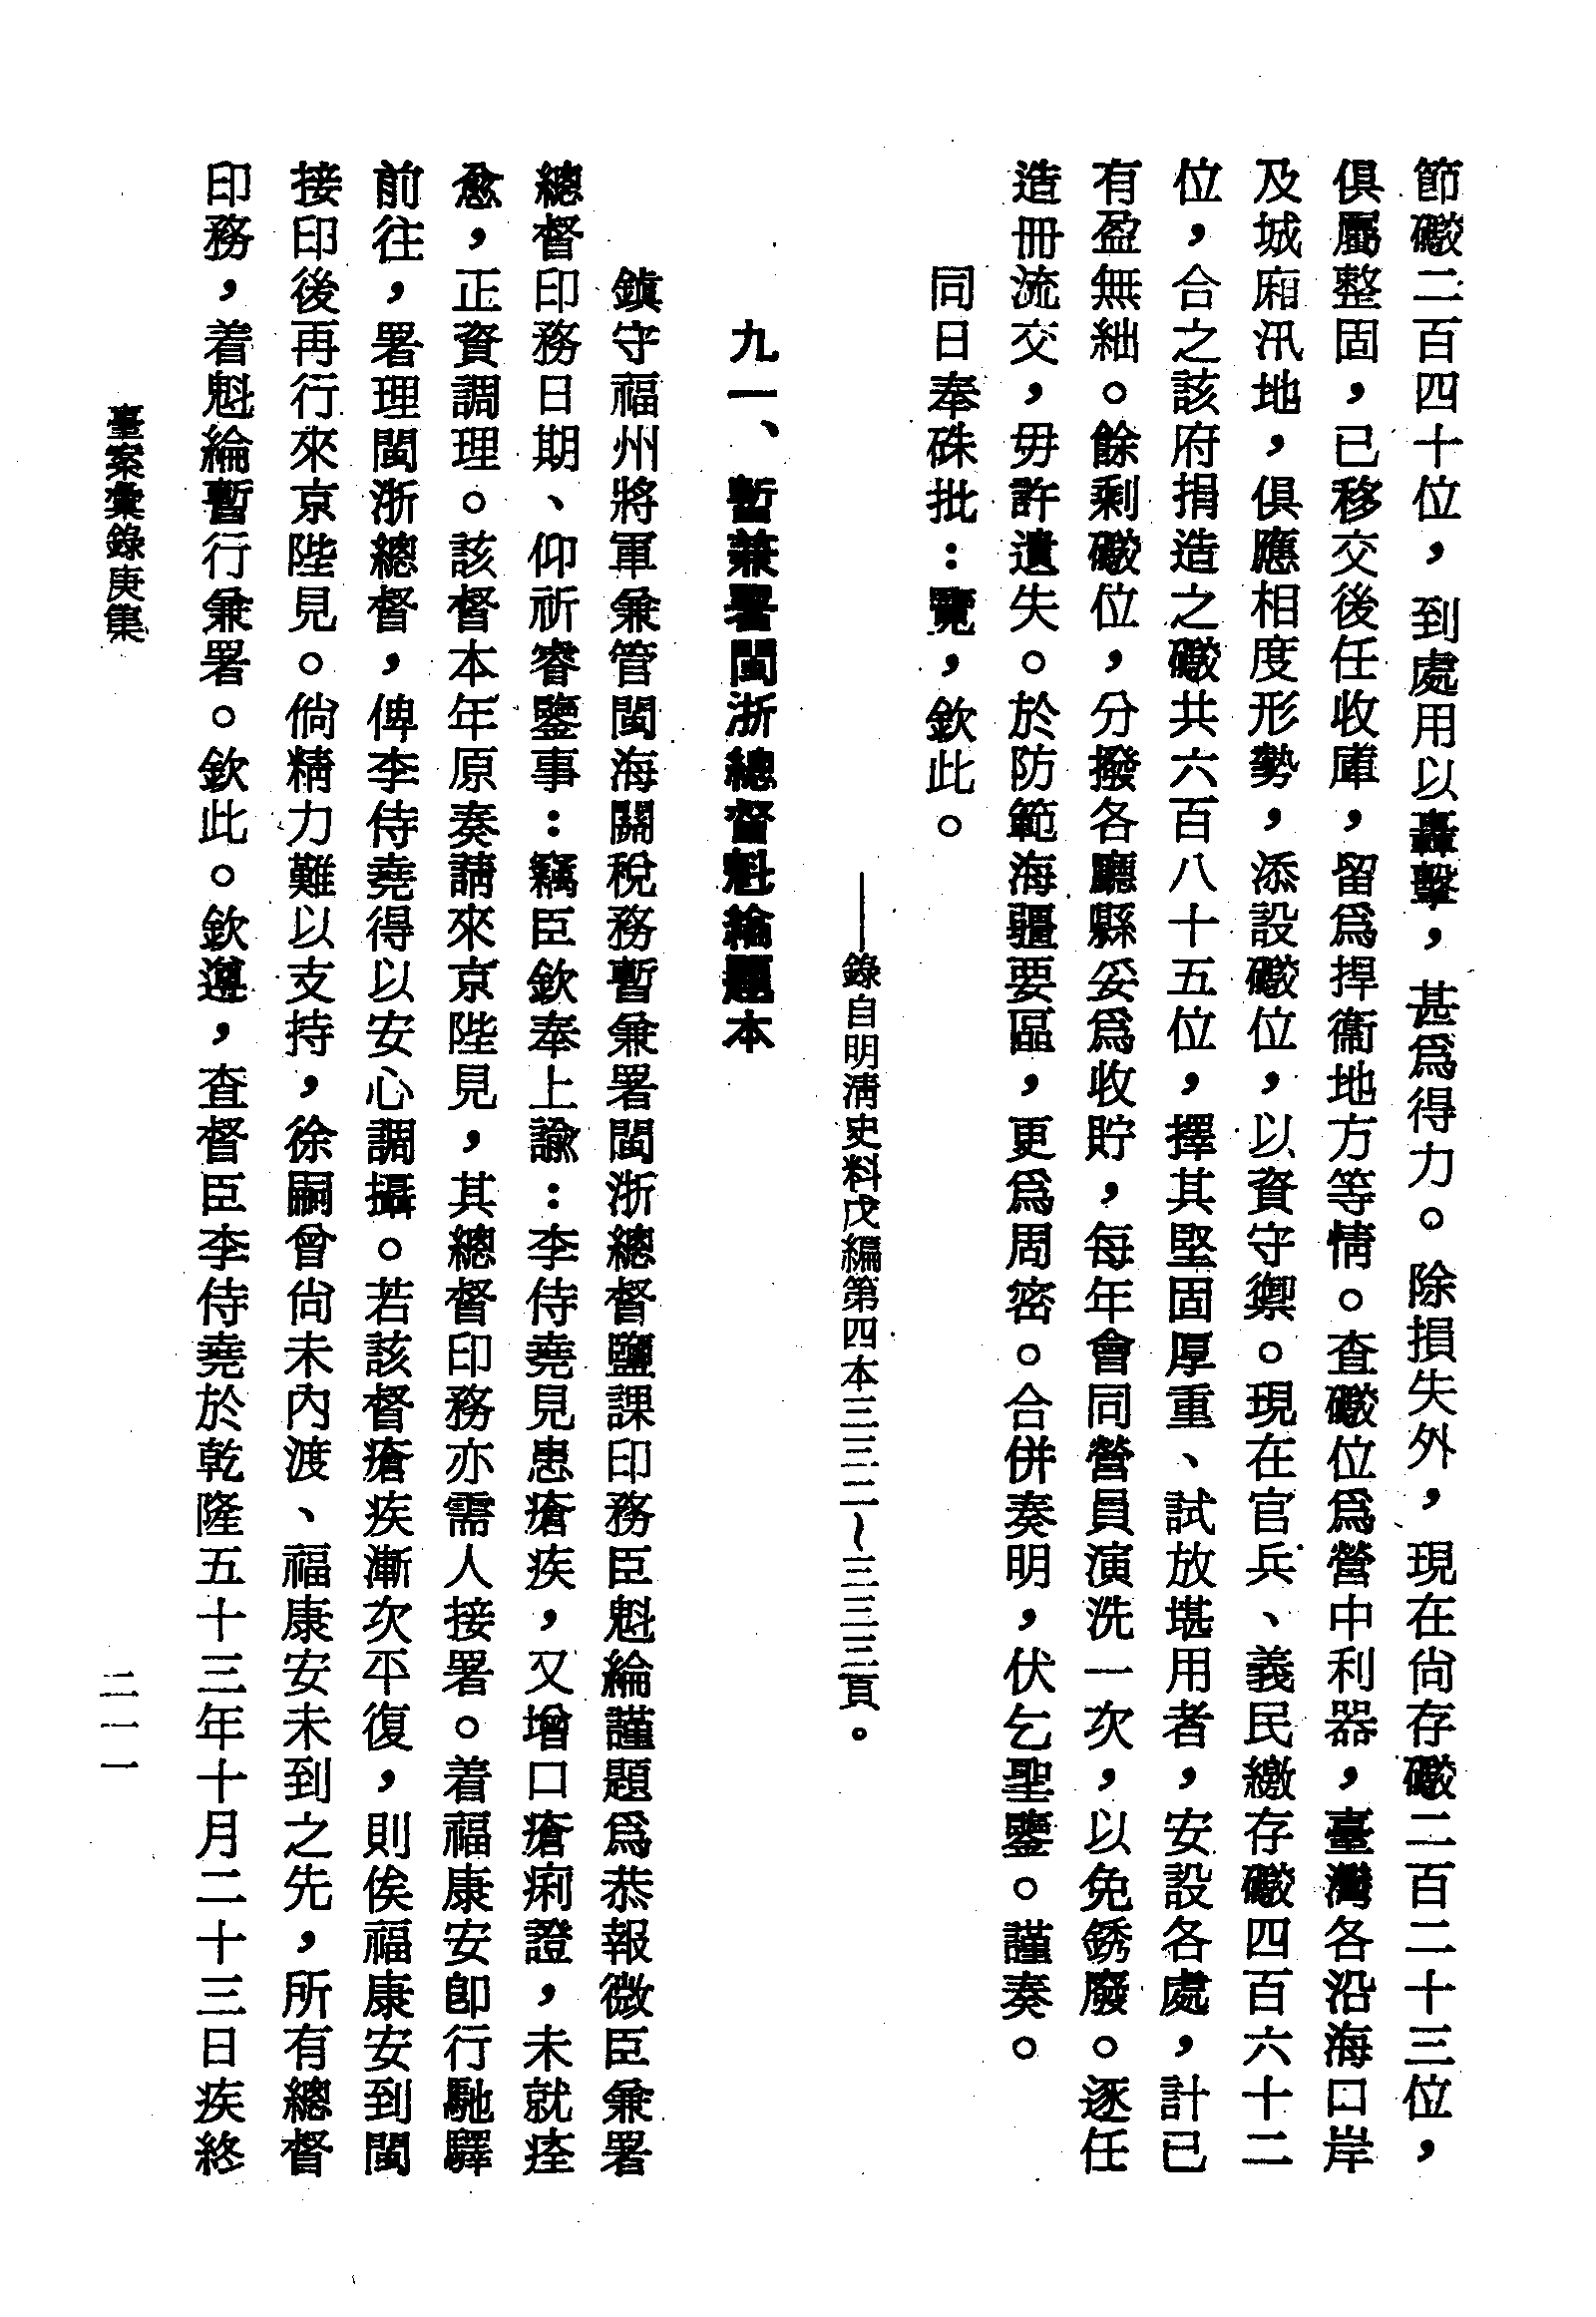 節礮二百四十位，到處用以轟擊，甚爲得力。除損失外，現在尙存礮二百二十三位，
俱屬整固，已移交後任收庫，留爲捍衞地方等情。查礮位爲營中利器，臺灣各沿海口岸
及城廂汛地，俱應相度形勢，添設礮位，以資守禦。現在官兵、義民繳存礮四百六十二
位，合之該府捐造之礮共六百八十五位，擇其堅固厚重、試放堪用者，安設各處，計已
有盈無絀。餘剩礮位，分撥各廳縣妥爲收貯，每年會同營員演洗一次，以免銹廢。逐任
造冊流交，毋許遺失。於防範海疆要區，更爲周密。合併奏明，伏乞聖鑒。謹奏。
同日奉硃批：覽，欽此。
——錄自明淸史料戊編第四本三三二～三三三頁。
九一、暫兼署閩浙總督魁綸題本
鎭守福州將軍兼管閩海關稅務暫兼署閩浙總督鹽課印務臣魁綸謹題爲恭報微臣兼署
總督印務日期、仰祈睿鑒事：竊臣欽奉上諭：李侍堯見患瘡疾，又增口瘡痢證，未就痊
愈，正資調理。該督本年原奏請來京陛見，其總督印務亦需人接署。着福康安卽行馳驛
前往，署理閩浙總督，俾李侍堯得以安心調攝。若該督瘡疾漸次平復，則俟福康安到閩
接印後再行來京陛見。倘精力難以支持，徐嗣曾尙未內渡、福康安未到之先，所有總督
印務，着魁綸暫行兼署。欽此。欽遵，查督臣李侍堯於乾隆五十三年十月二十三日疾終
臺案彙錄庚集
二一一